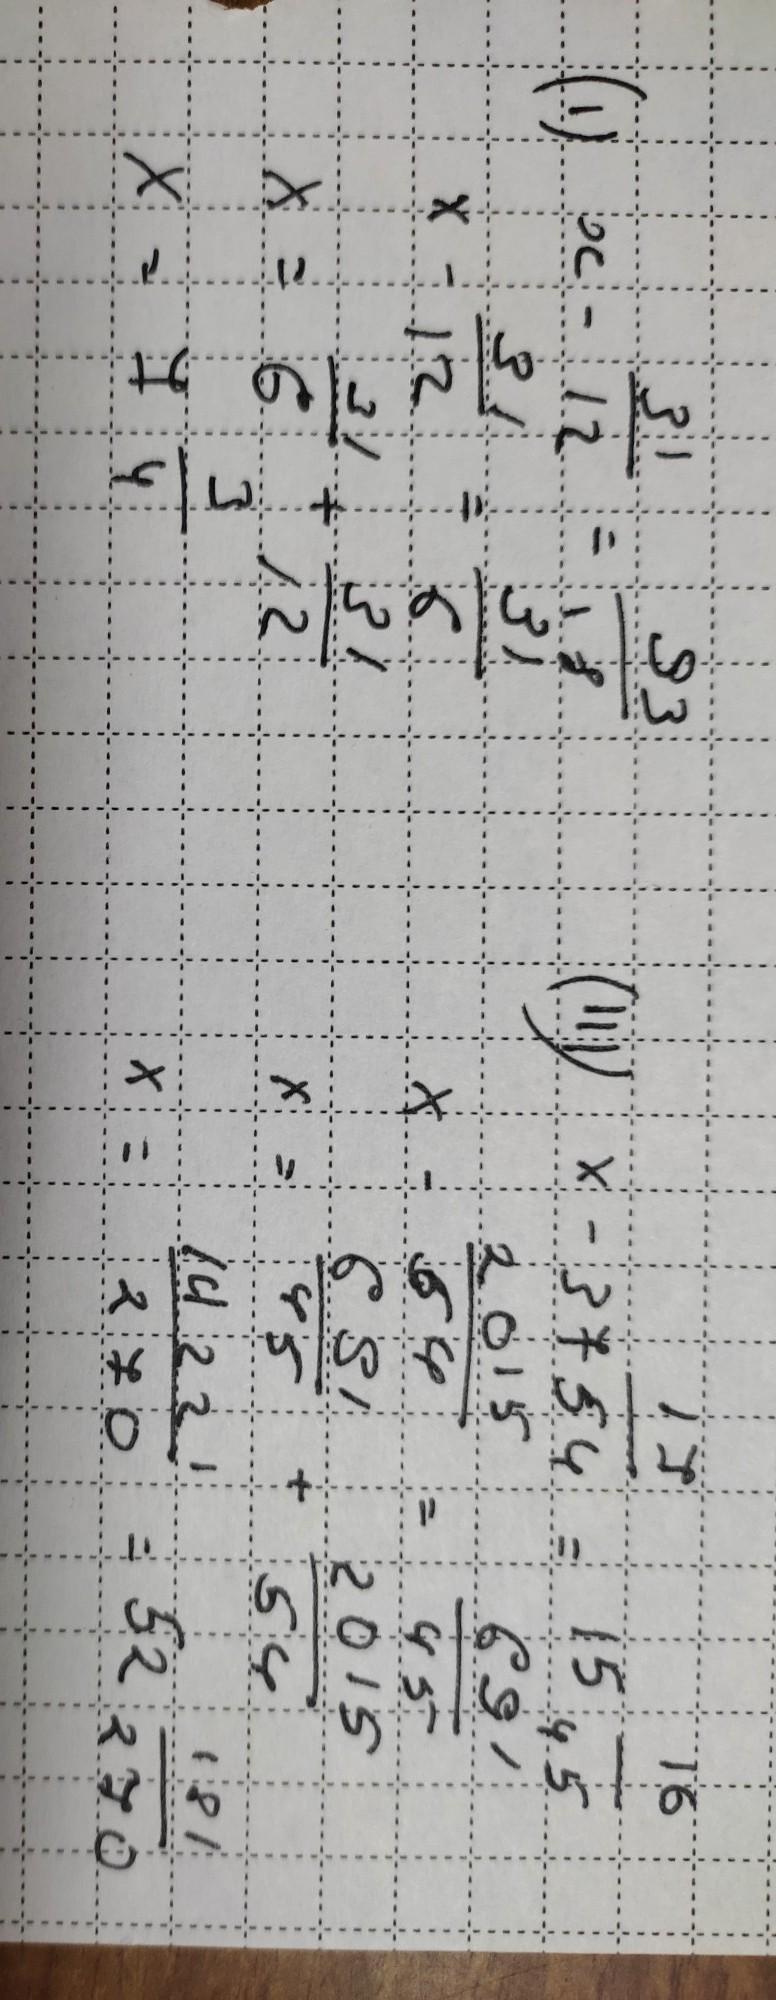 (i) x - 31/12 = 93/18
x - 31/12 = 31/6
x = 31/6 + 31/12
x = 7 3/4
(iii) x - 37 17/54 = 15 16/45
x - 2015/54 = 691/45
x = 691/45 + 2015/54
x = 14221/270 = 52 181/270